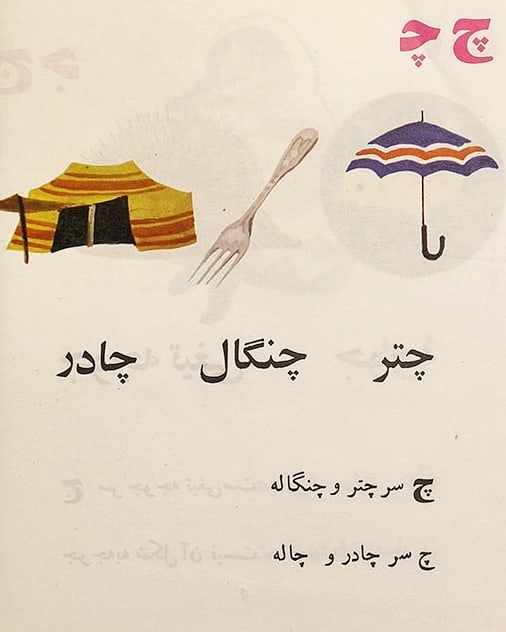 چ چـ
چتر چنگال چادر
چ سر چتر و چنگاله
چ سر چادر و چاله